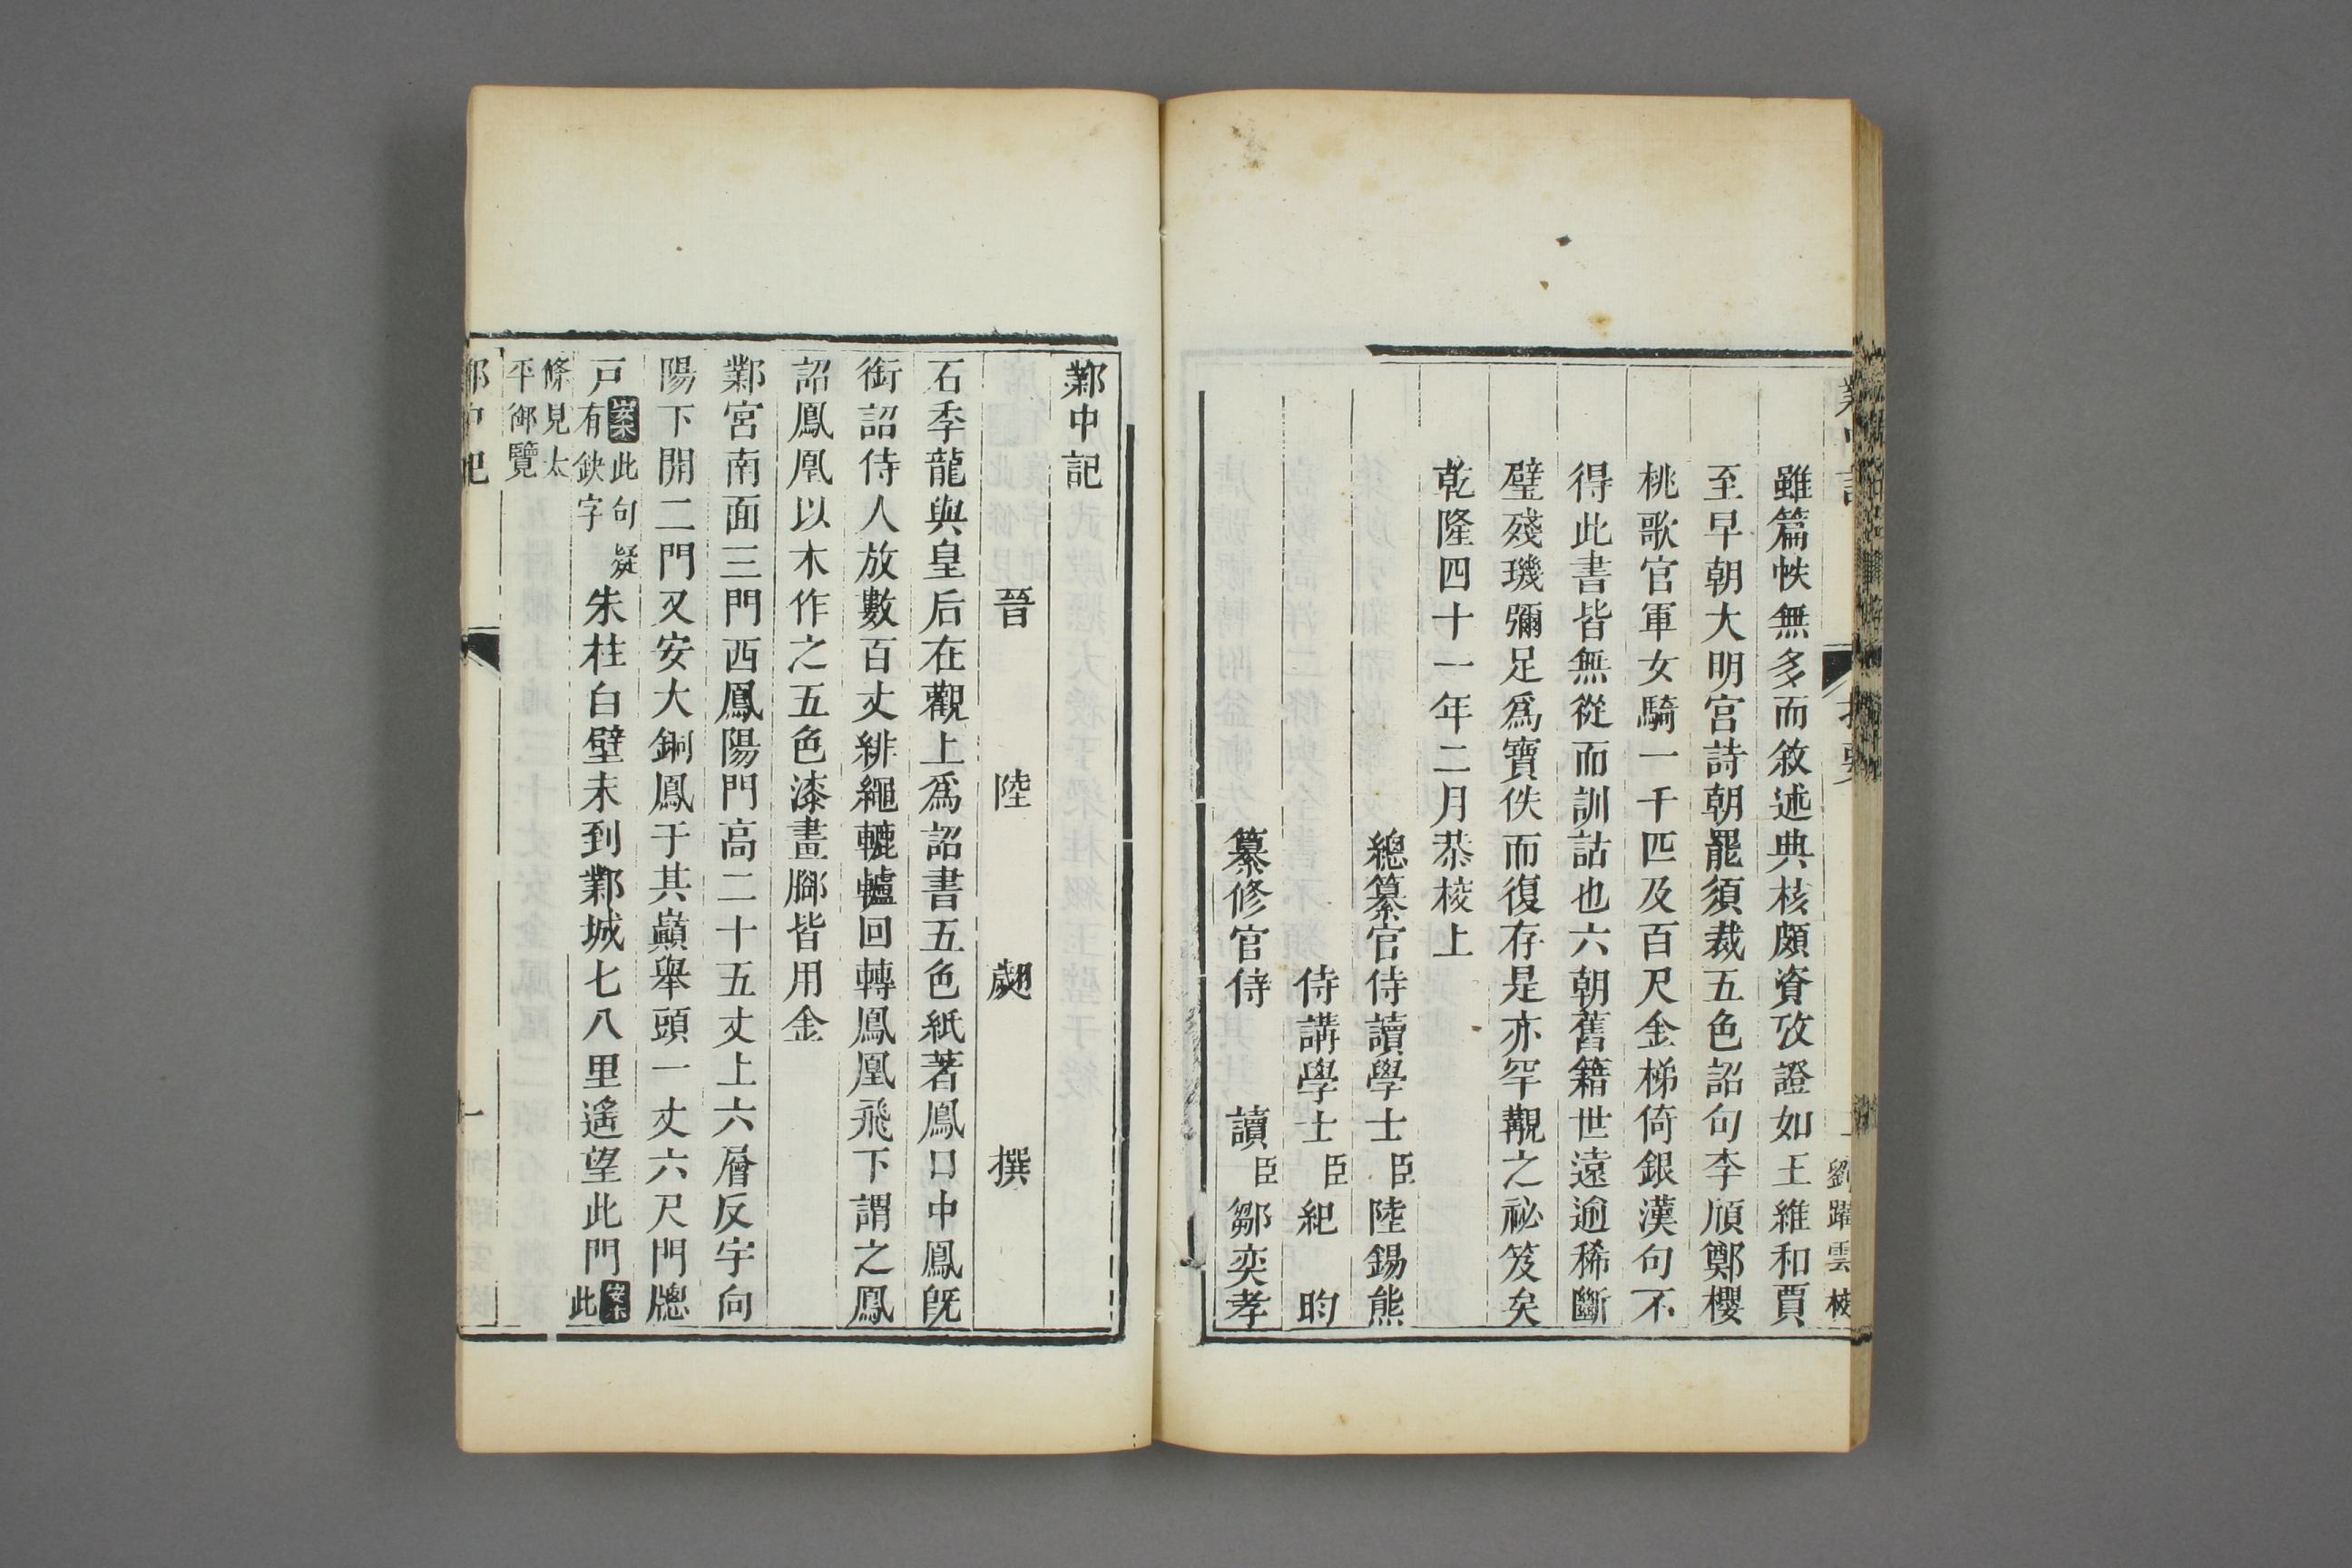 雖篇帙無多而敘述典核頗資攷證如王維和賈
至早朝大明宮詩朝罷須裁五色詔句李頎鄭櫻
桃歌官軍女騎一千匹及百尺金梯倚銀漢句不
得此書皆無從而訓詁也六朝舊籍世遠逾稀斷
璧殘璣彌足爲寶佚而復存是亦罕覯之祕笈矣
乾隆四十一年二月恭校上
總纂官侍讀學士臣陸錫熊
侍講學士臣紀 昀
纂修官侍 讀臣鄒奕孝
鄴中記
晉 陸 翽 撰
石季龍與皇后在觀上爲詔書五色紙著鳳口中鳳旣
銜詔侍人放數百丈緋繩轆轤回轉鳳凰飛下謂之鳳
詔鳳凰以木作之五色漆畫腳皆用金
鄴宮南面三門西鳳陽門高二十五丈上六層反宇向
陽下開二門又安大銅鳳于其巔舉頭一丈六尺門牕
戶案此句疑有缺字朱柱白壁未到鄴城七八里遙望此門案此
條見太平御覽